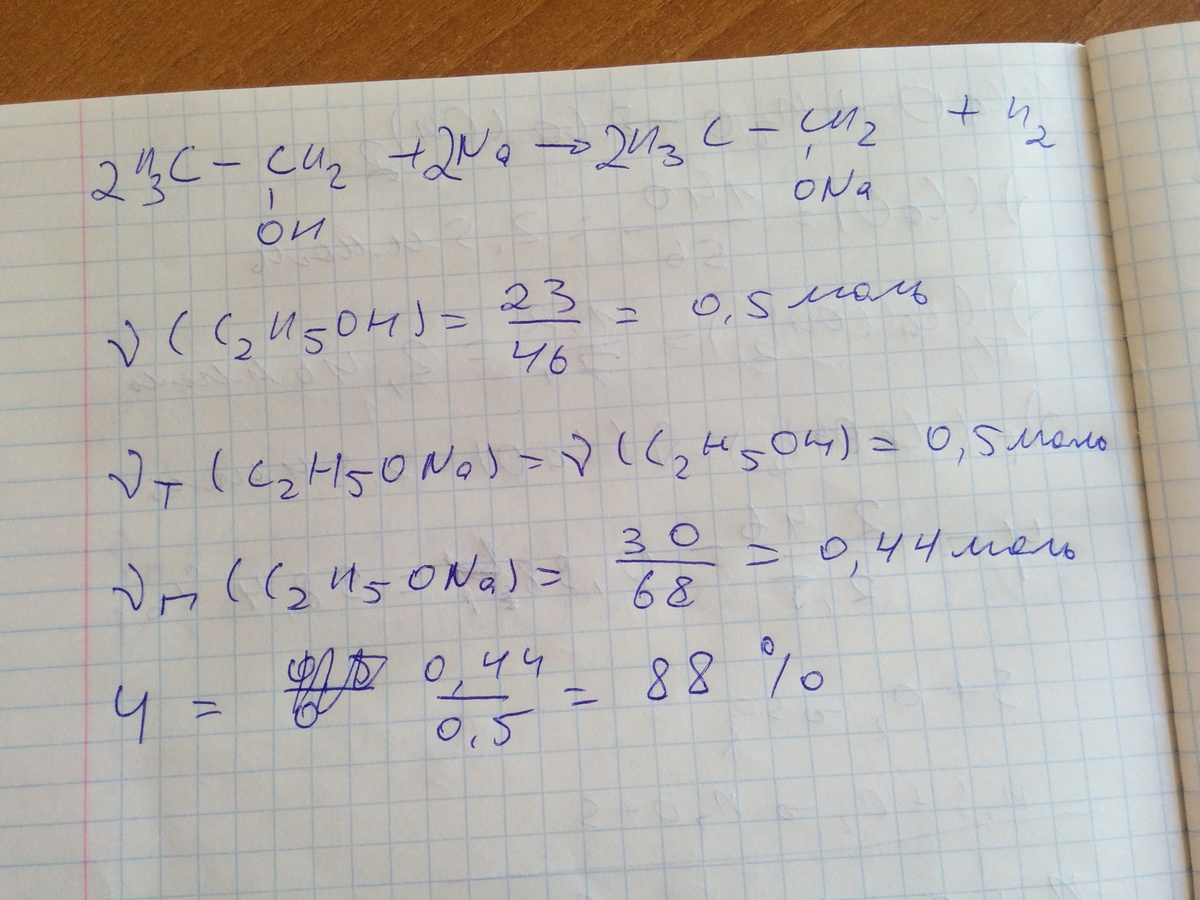 2H₃C – CH₂ + 2Na → 2H₃C – CH₂ + H₂
OH ONa
ν(C₂H₅OH) = 23/46 = 0,5 моль
νт(C₂H₅ONa) = ν(C₂H₅OH) = 0,5 моль
νп(C₂H₅ONa) = 30/68 = 0,44 моль
η = 0,44/0,5 = 88 %